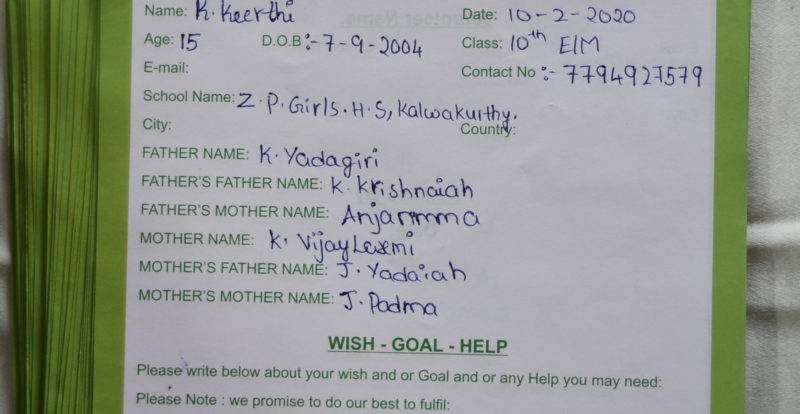 Name: K. Keerthi Date: 10-2-2020
Age: 15 D.O.B:- 7-9-2004 Class: 10th E/M
E-mail: Contact No :- 7794927579
School Name: Z.P. Girls. H.S, Kalwakurthy.
City: Country:
FATHER NAME: K. Yadagiri
FATHER'S FATHER NAME: K. Krishnaiah
FATHER'S MOTHER NAME: Anjamma
MOTHER NAME: K. VijayLaxmi
MOTHER'S FATHER NAME: J. Yadaiah
MOTHER'S MOTHER NAME: J. Padma
WISH - GOAL - HELP
Please write below about your wish and or Goal and or any Help you may need:
Please Note : we promise to do our best to fulfil: